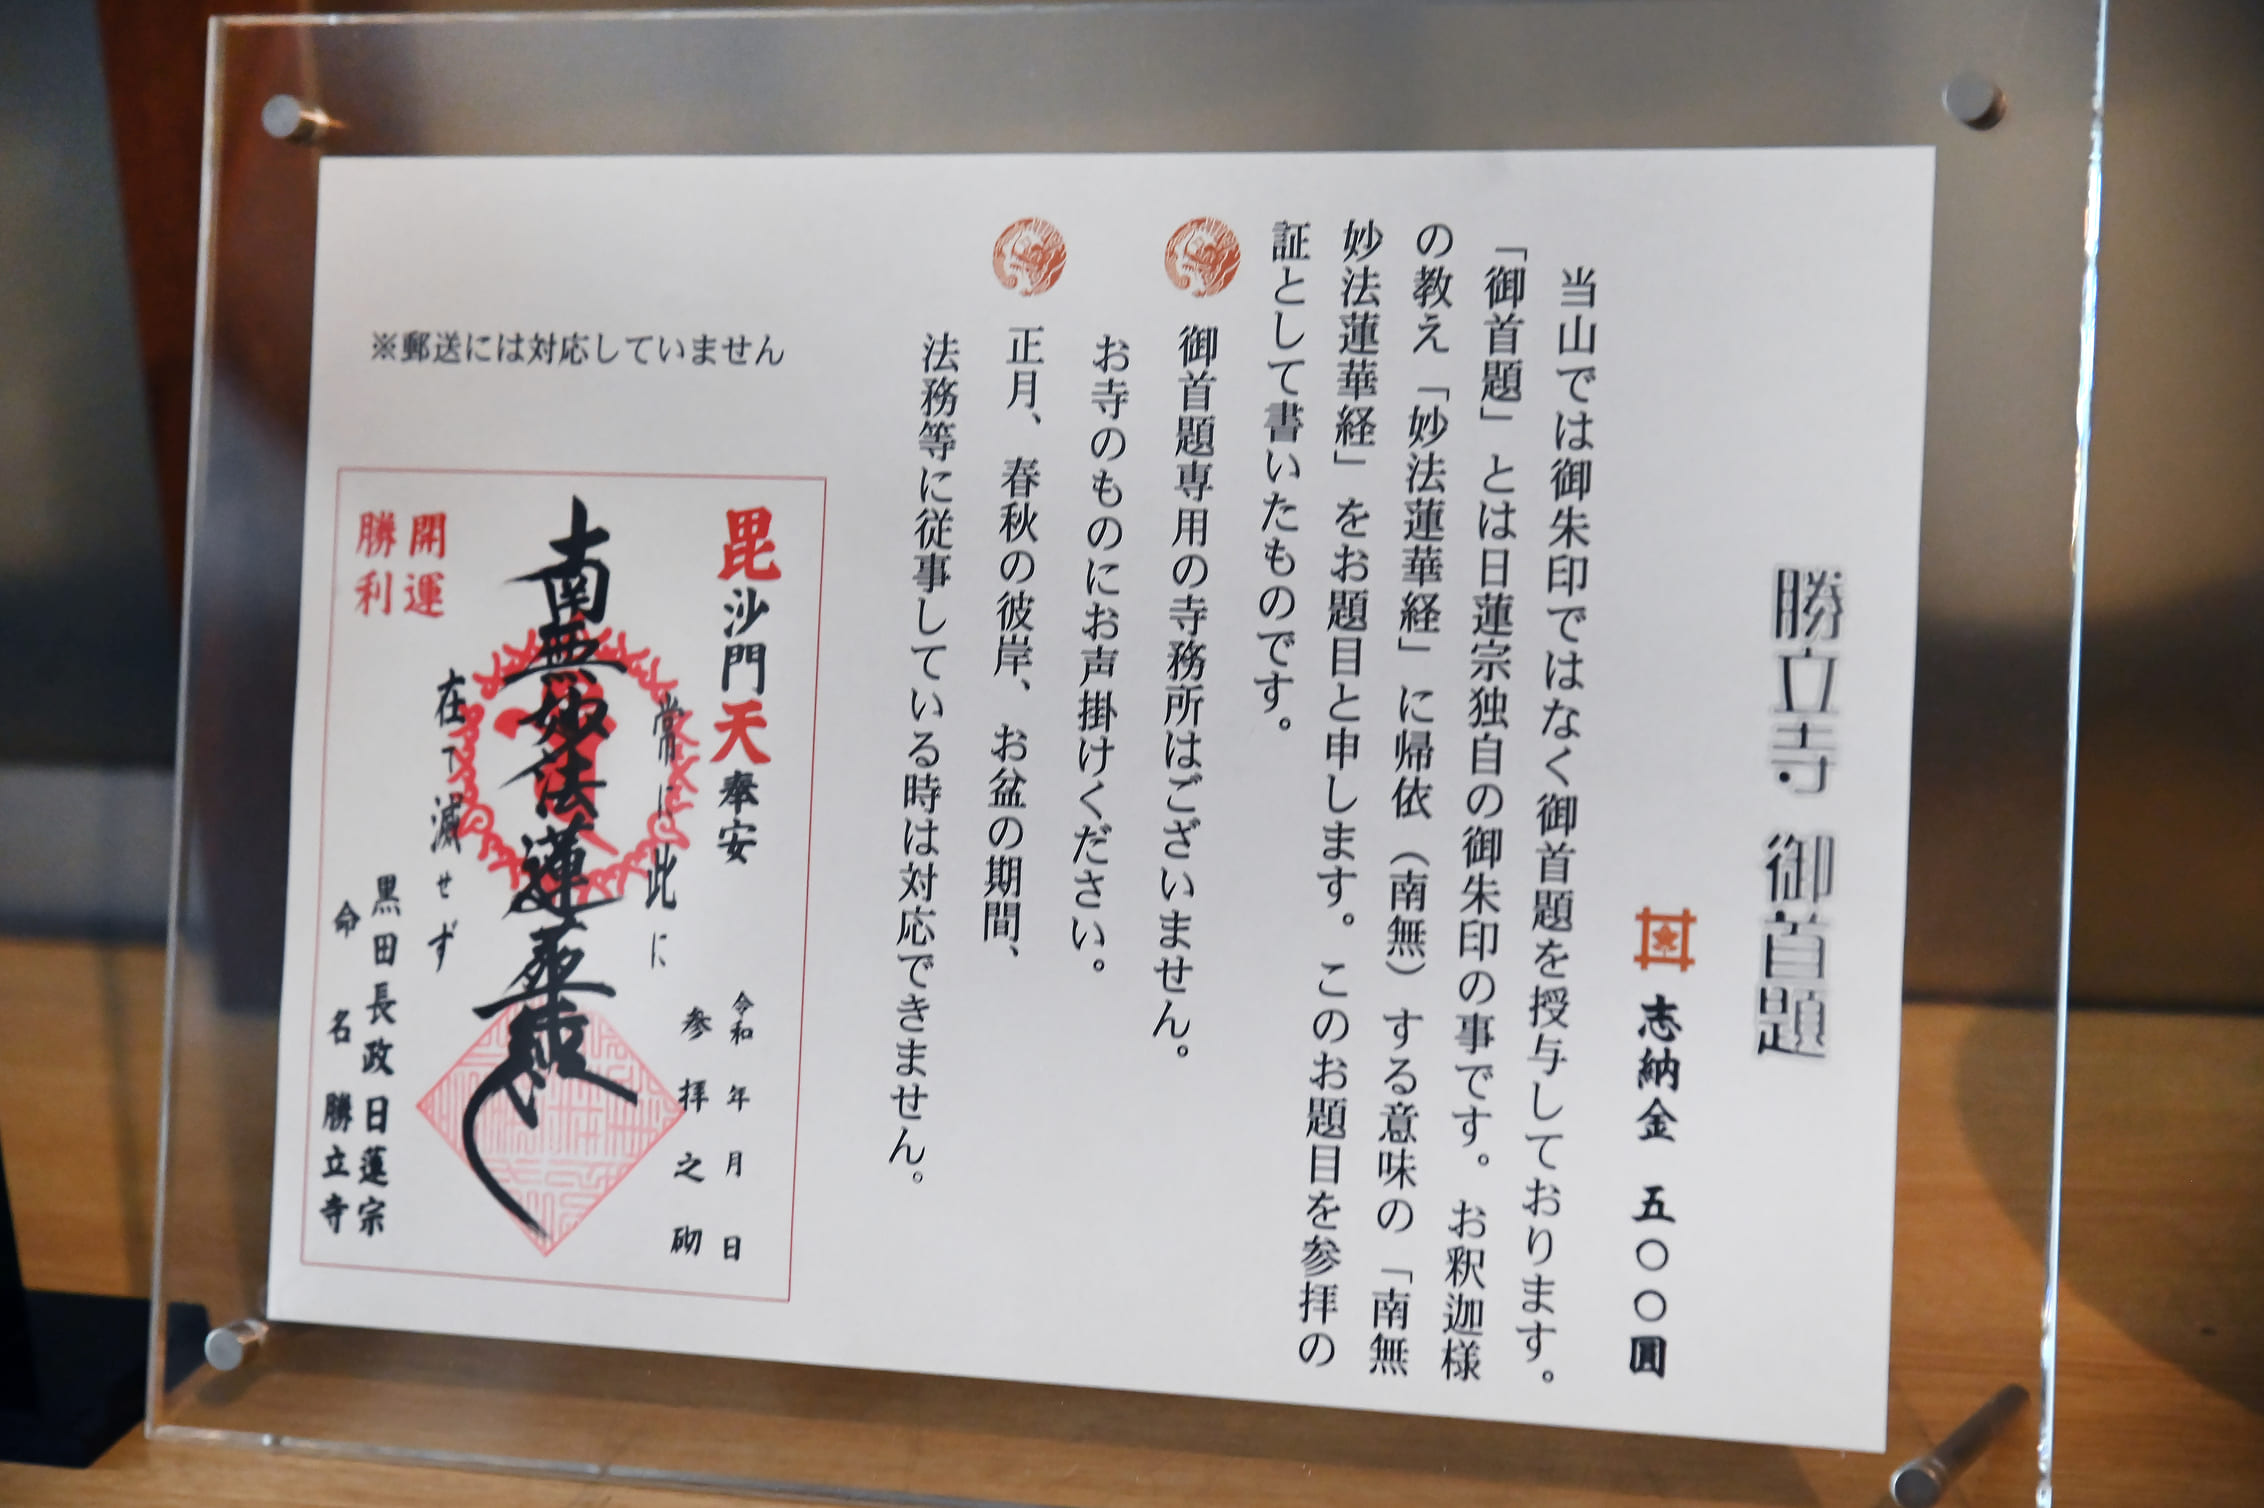 勝立寺 御首題
志納金 五〇〇圓
当山では御朱印ではなく御首題を授与しております。
「御首題」とは日蓮宗独自の御朱印の事です。お釈迦様
の教え「妙法蓮華経」に帰依（南無）する意味の「南無
妙法蓮華経」をお題目と申します。このお題目を参拝の
証として書いたものです。
御首題専用の寺務所はございません。
お寺のものにお声掛けください。
正月、春秋の彼岸、お盆の期間、
法務等に従事している時は対応できません。
※郵送には対応していません
毘沙門天奉安
令和 年 月 日
参拝之砌
常に此に
南無妙法蓮華経
在って滅せず
開運
勝利
黒田長政
命名
日蓮宗
勝立寺